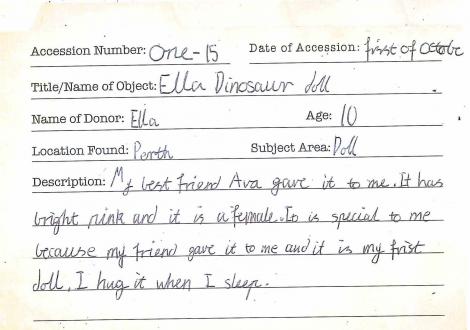 Accession Number: One-15 Date of Accession: first of Octobe
Title/Name of Object: Ella Dinosaur doll
Name of Donor: Ella Age: 10
Location Found: Perth Subject Area: Doll
Description: My best friend Ava gave it to me. It has
bright pink and it is a female. It is special to me
because my friend gave it to me and it is my frist
doll, I hug it when I sleep.